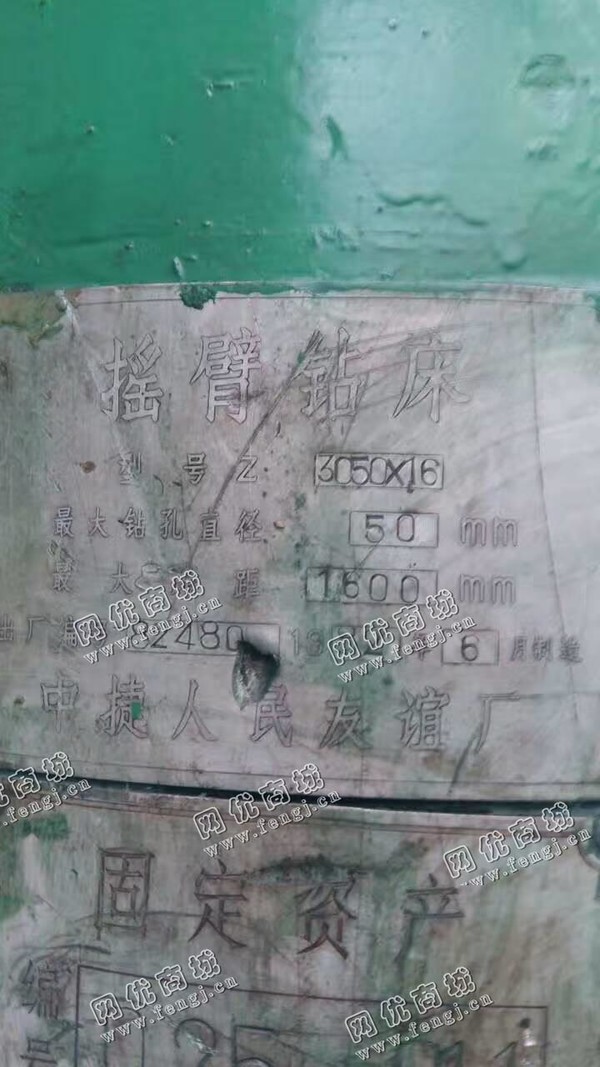 摇臂钻床
型号Z 3050X16
最大钻孔直径 50 mm
最大 距 1600 mm
出厂 82480 19 年 6 月制造
中捷人民友谊厂
固定资产
编号
网优商城
www.fengj.cn
网优商城
www.fengj.cn
网优商城
www.fengj.cn
网优商城
www.fengj.cn
网优商城
www.fengj.cn
网优商城
www.fengj.cn
网优商城
www.fengj.cn